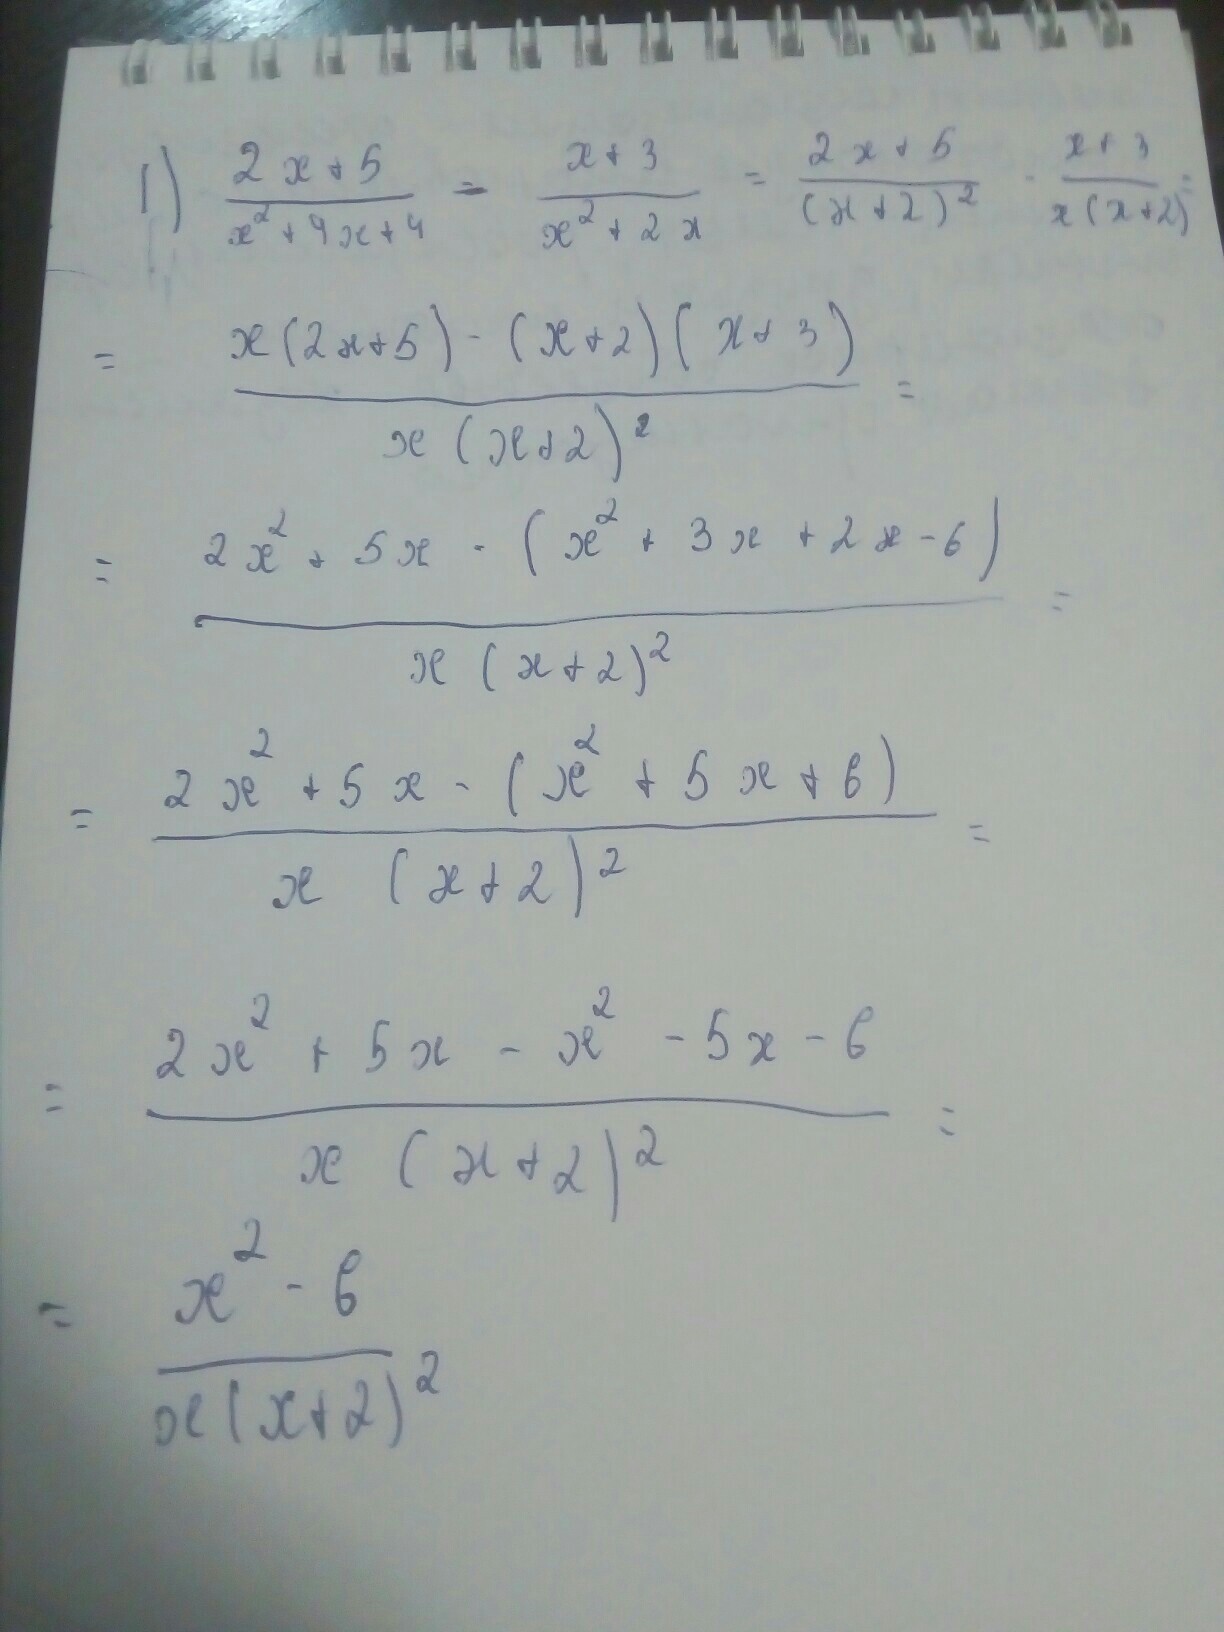 1) \frac{2x+5}{x^2+4x+4} - \frac{x+3}{x^2+2x} = \frac{2x+5}{(x+2)^2} - \frac{x+3}{x(x+2)} =
= \frac{x(2x+5)-(x+2)(x+3)}{x(x+2)^2} =
= \frac{2x^2+5x-(x^2+3x+2x-6)}{x(x+2)^2} =
= \frac{2x^2+5x-(x^2+5x+6)}{x(x+2)^2} =
= \frac{2x^2+5x-x^2-5x-6}{x(x+2)^2} =
= \frac{x^2-6}{x(x+2)^2}